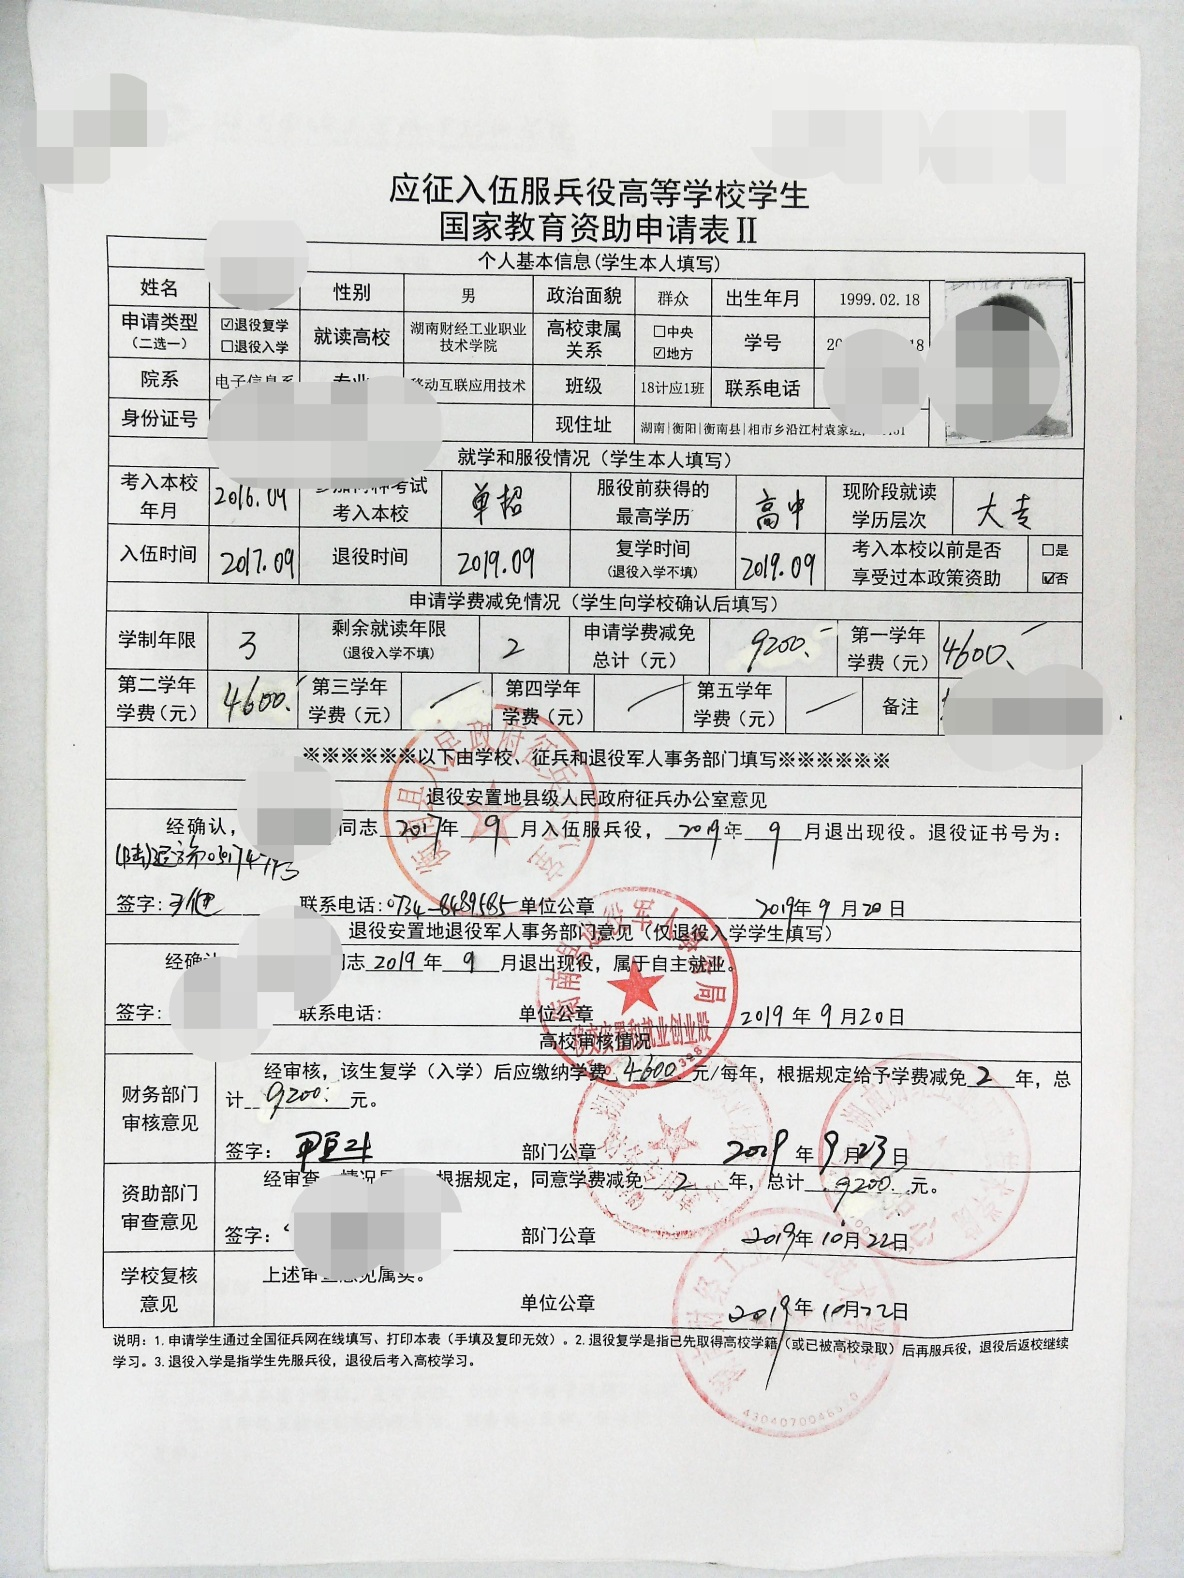 应征入伍服兵役高等学校学生
国家教育资助申请表Ⅱ
个人基本信息(学生本人填写)
姓名 性别 男 政治面貌 群众 出生年月 1999.02.18
申请类型 (二选一) ☑退役复学 □退役入学 就读高校 湖南财经工业职业技术学院 高校隶属关系 □中央 ☑地方 学号 18
院系 电子信息系 专业 移动互联应用技术 班级 18计应1班 联系电话
身份证号 现住址 湖南|衡阳|衡南县|相市乡沿江村袁家组
就学和服役情况（学生本人填写）
考入本校年月 2016.09 参加何种考试考入本校 单招 服役前获得的最高学历 高中 现阶段就读学历层次 大专
入伍时间 2017.09 退役时间 2019.09 复学时间 (退役入学不填) 2019.09 考入本校以前是否享受过本政策资助 □是 ☑否
申请学费减免情况（学生向学校确认后填写）
学制年限 3 剩余就读年限 (退役入学不填) 2 申请学费减免总计（元） 9200. 第一学年学费（元） 4600
第二学年学费（元） 4600. 第三学年学费（元） 第四学年学费（元） 第五学年学费（元） 备注
※※※※※※以下由学校、征兵和退役军人事务部门填写※※※※※※
退役安置地县级人民政府征兵办公室意见
经确认， 同志 2017 年 9 月入伍服兵役， 2019 年 9 月退出现役。退役证书号为：
签字: 联系电话: 0734-8489585 单位公章 2019年 9 月 20 日
退役安置地退役军人事务部门意见（仅退役入学学生填写）
经确认 同志 2019 年 9 月退出现役，属于自主就业。
签字: 联系电话: 单位公章 2019 年 9 月 20 日
高校审核情况
财务部门审核意见 经审核，该生复学（入学）后应缴纳学费 4600 元/每年，根据规定给予学费减免 2 年，总计 9200. 元。
签字: 部门公章 2019 年 9 月 23 日
资助部门审查意见 经审查，情况属 根据规定，同意学费减免 2 年，总计 9200 元。
签字: 部门公章 2019年 10月 22日
学校复核意见 上述审查意见属实。
单位公章 2019年 10月22日
说明：1.申请学生通过全国征兵网在线填写、打印本表（手填及复印无效）。2.退役复学是指已先取得高校学籍（或已被高校录取）后再服兵役，退役后返校继续
学习。3.退役入学是指学生先服兵役，退役后考入高校学习。